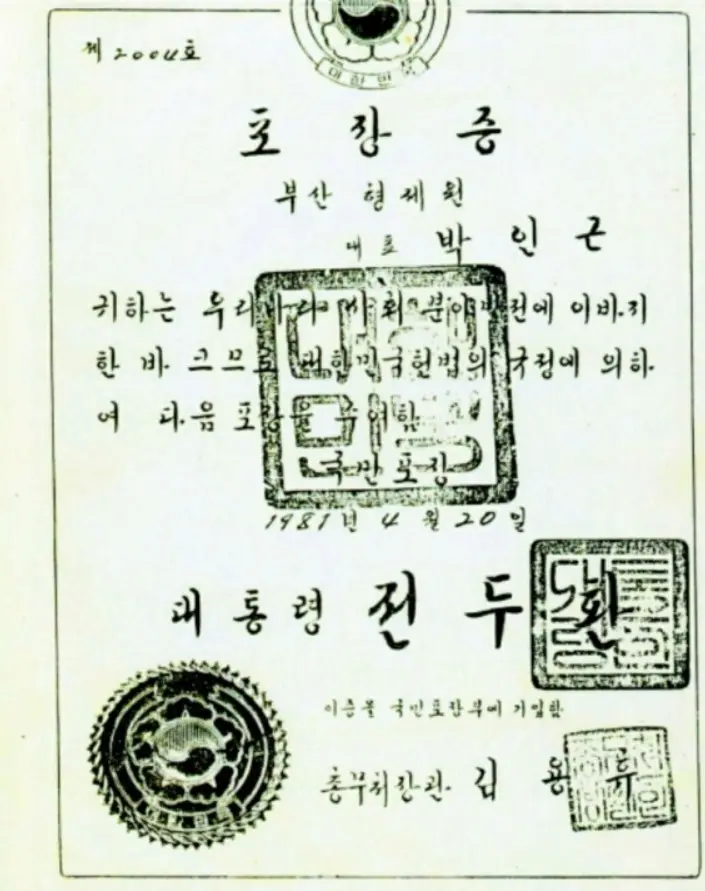 제 2004호
대한민국
포장증
부산 형제원
대표 박인근
귀하는 우리나라 사회 분야 발전에 이바지
한 바 크므로 대한민국헌법의 규정에 의하
여 다음 포장을 수여함
국민포장
1981년 4월 20일
대통령 전두환
이증을 국민포장부에 기입함
총무처장관 김용휴